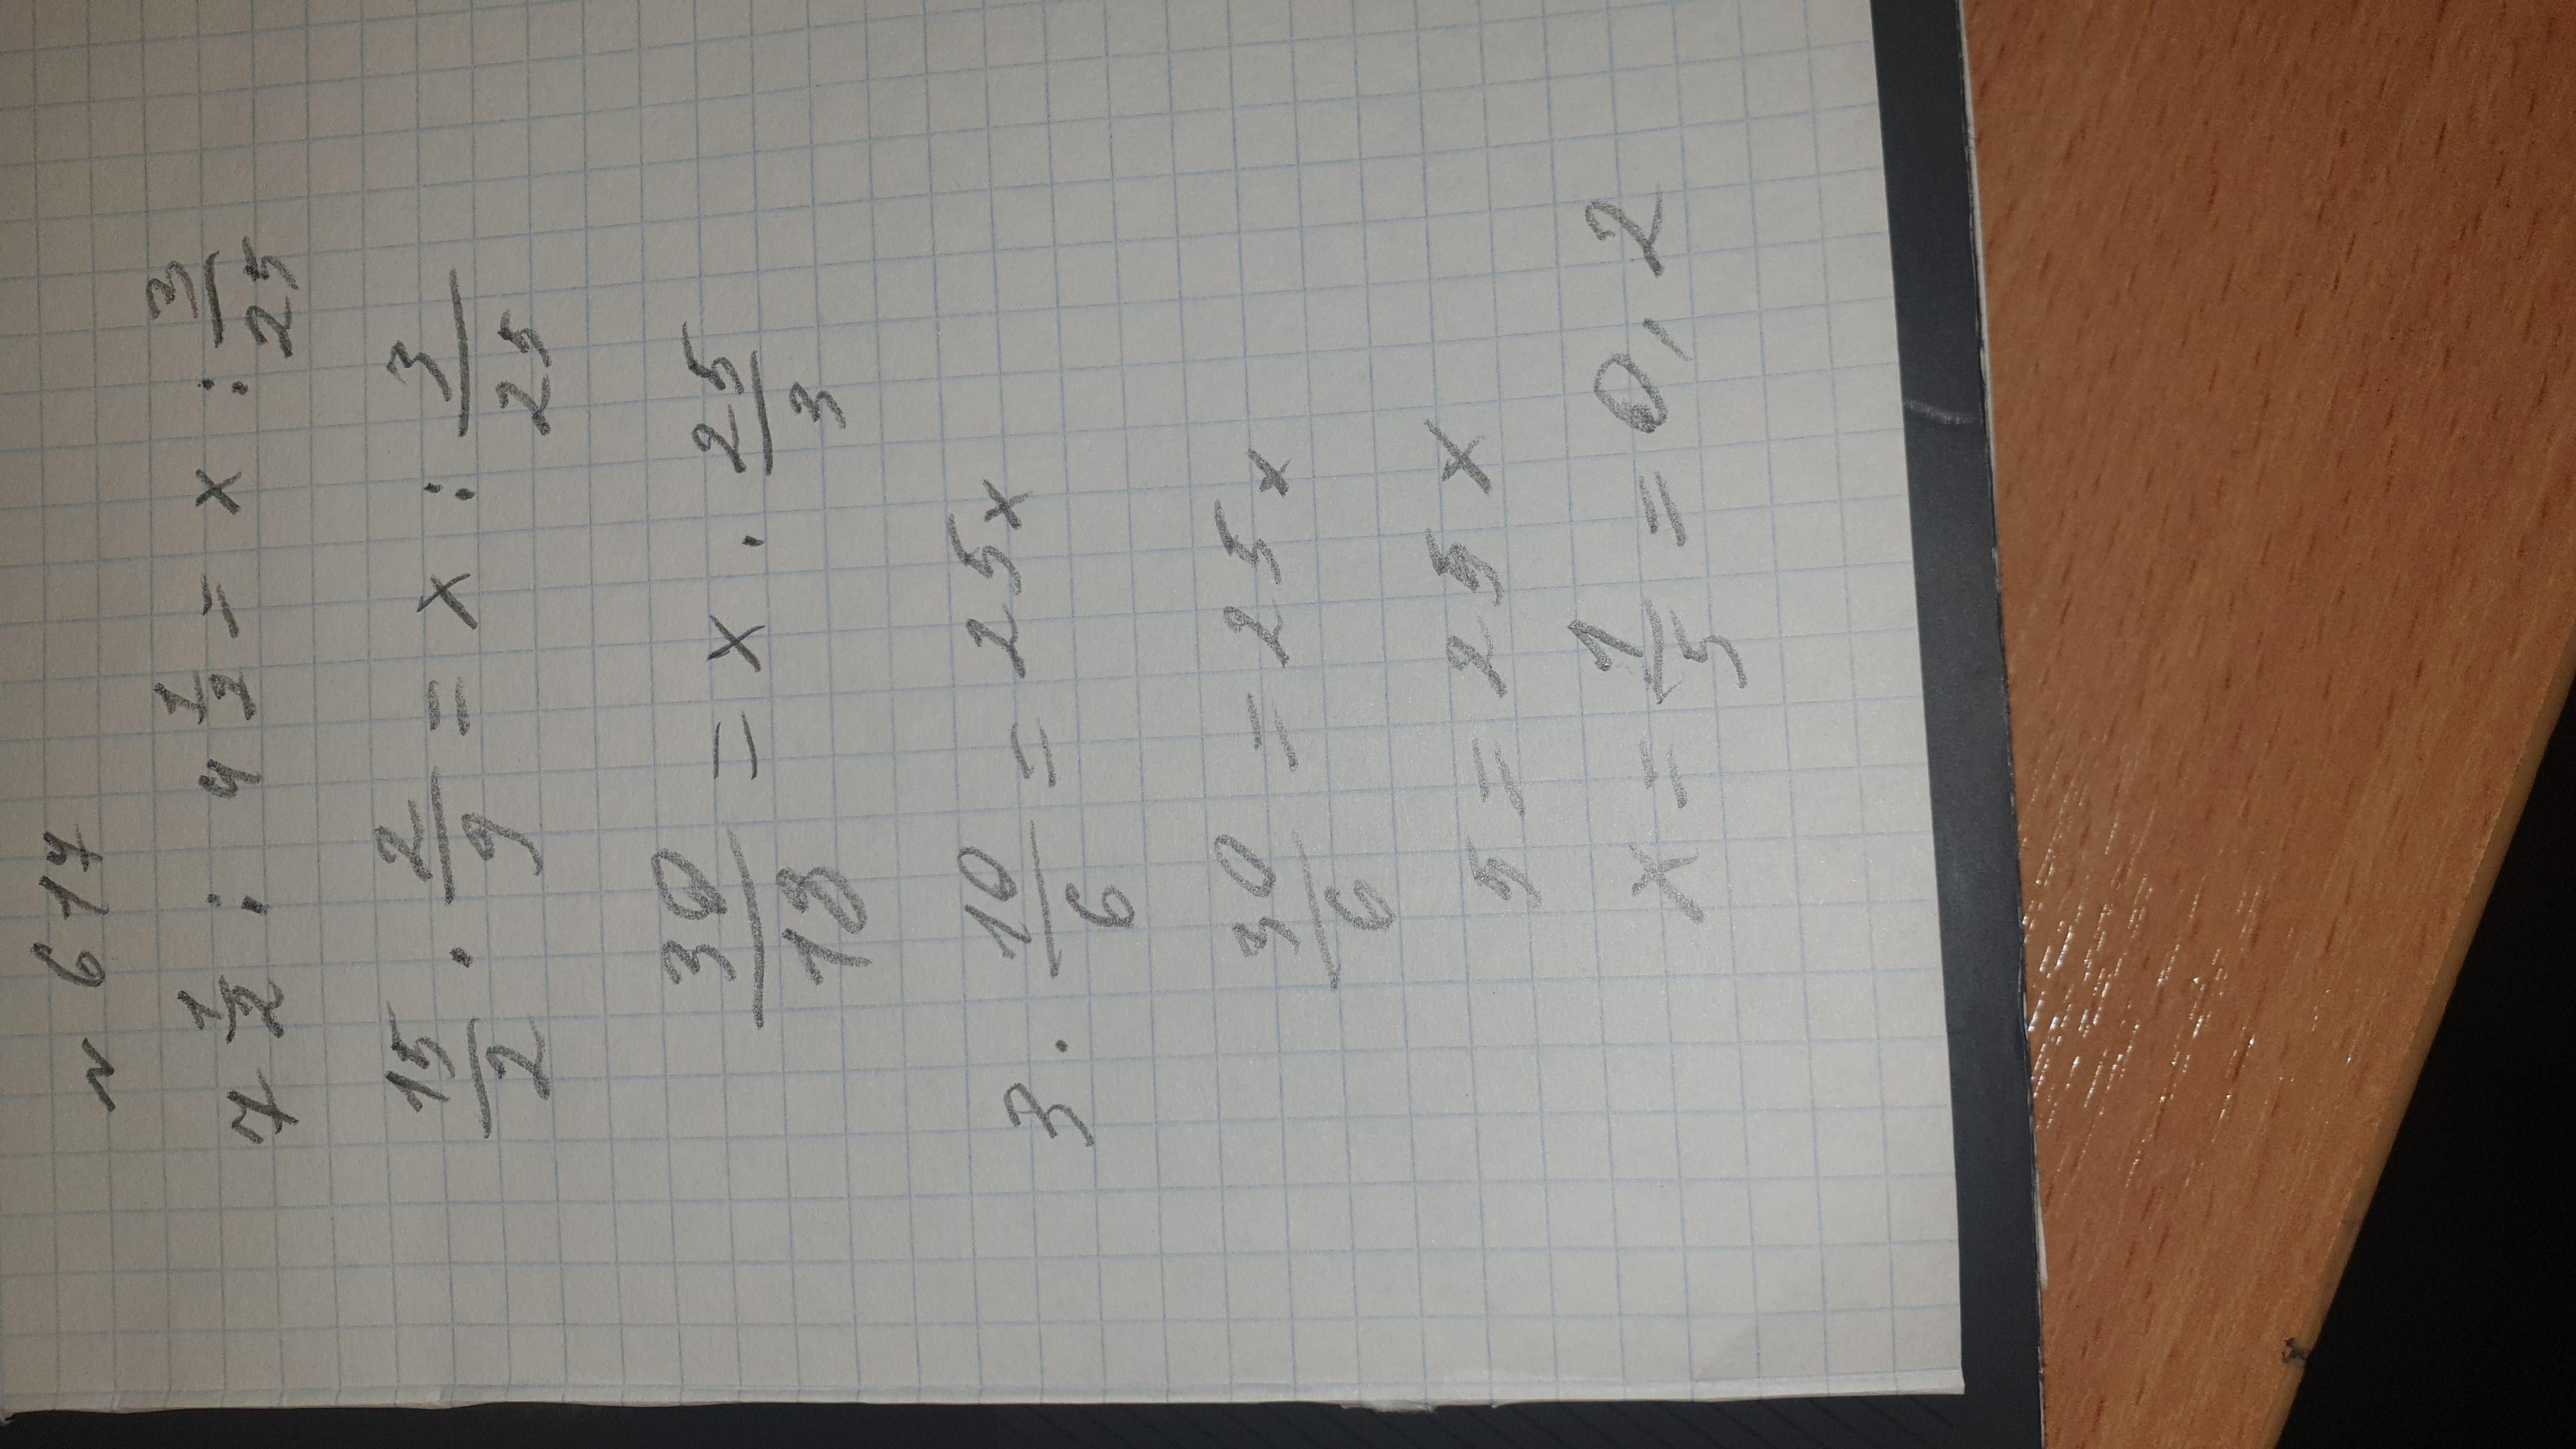 N 617
7 1/2 : 4 1/2 = x : 3/25
15/2 · 2/9 = x : 3/25
30/18 = x · 25/3
3 · 10/6 = 25x
30/6 = 25x
5 = 25x
x = 1/5 = 0,2